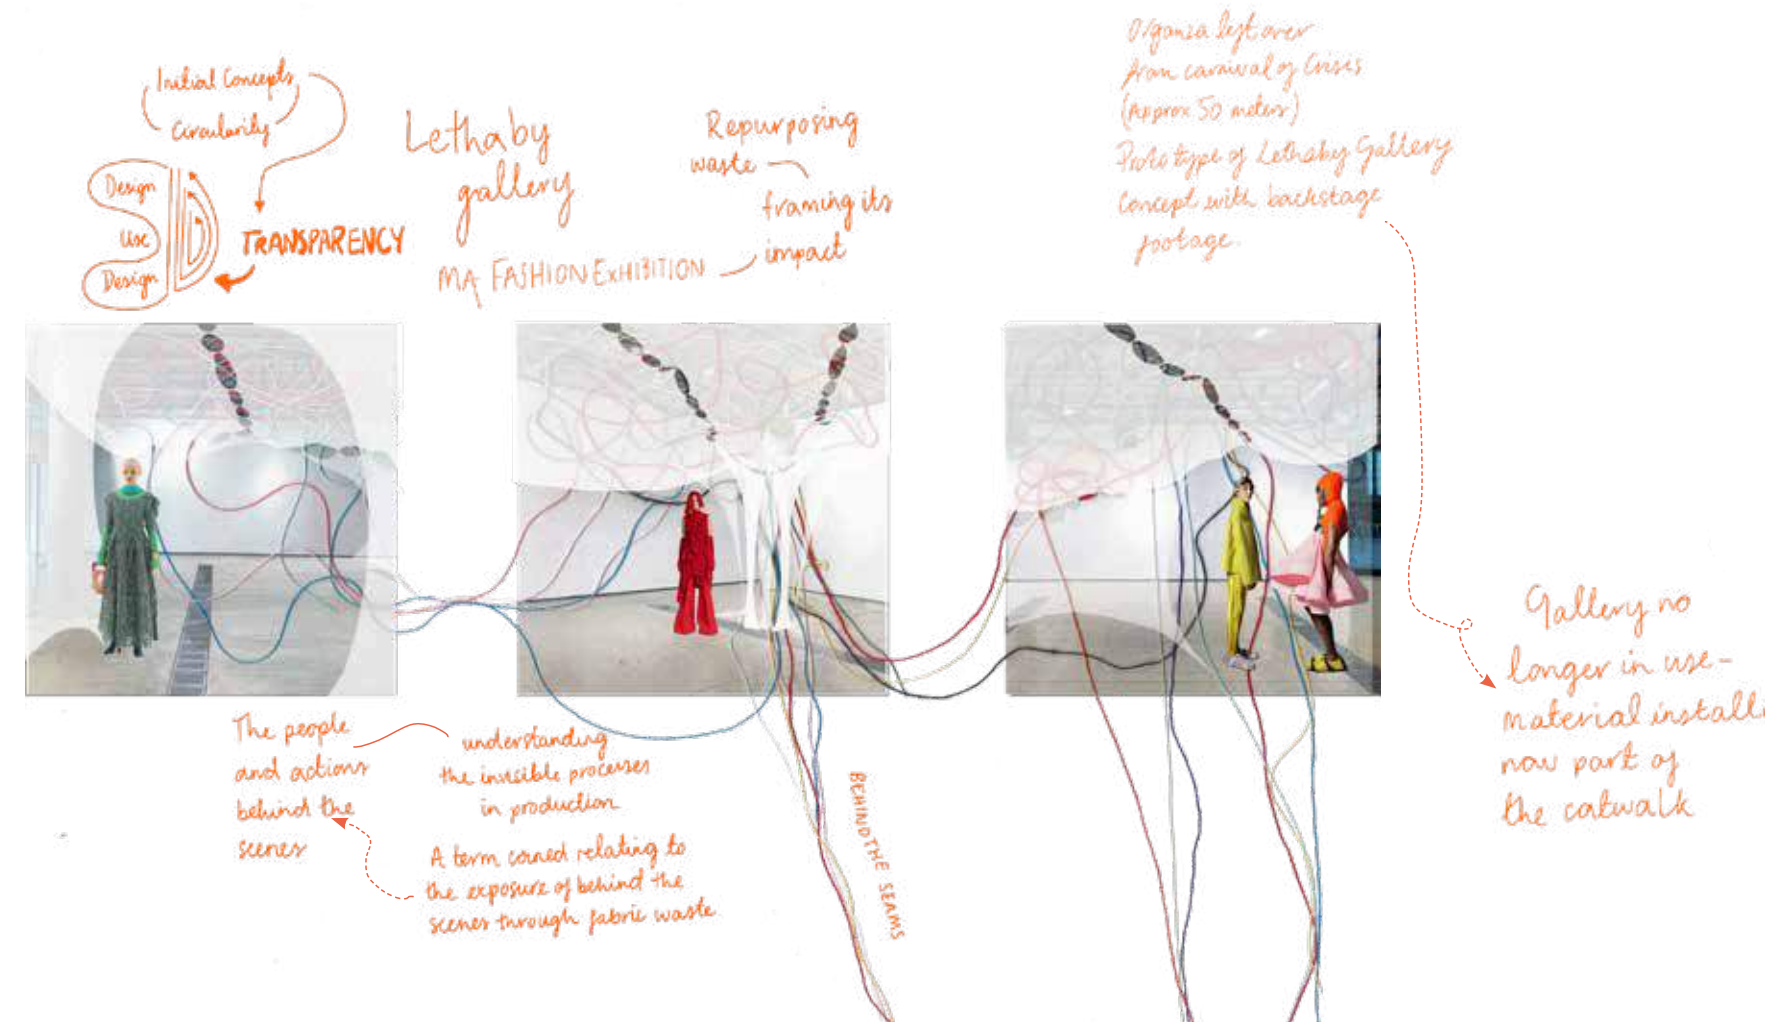 Initial Concepts
Circularity
Design
Use
Design
TRANSPARENCY
Lethaby
gallery
MA FASHION EXHIBITION
Repurposing
waste
framing its
impact
Organza left over
from carnival of Crisis
(Approx 50 meters)
Prototype of Lethaby Gallery
concept with backstage
footage.
Gallery no
longer in use -
material installi
now part of
the catwalk
The people
and actions
behind the
scenes
understanding
the invisible processes
in production
A term coined relating to
the exposure of behind the
scenes through fabric waste
BEHIND THE SEAMS